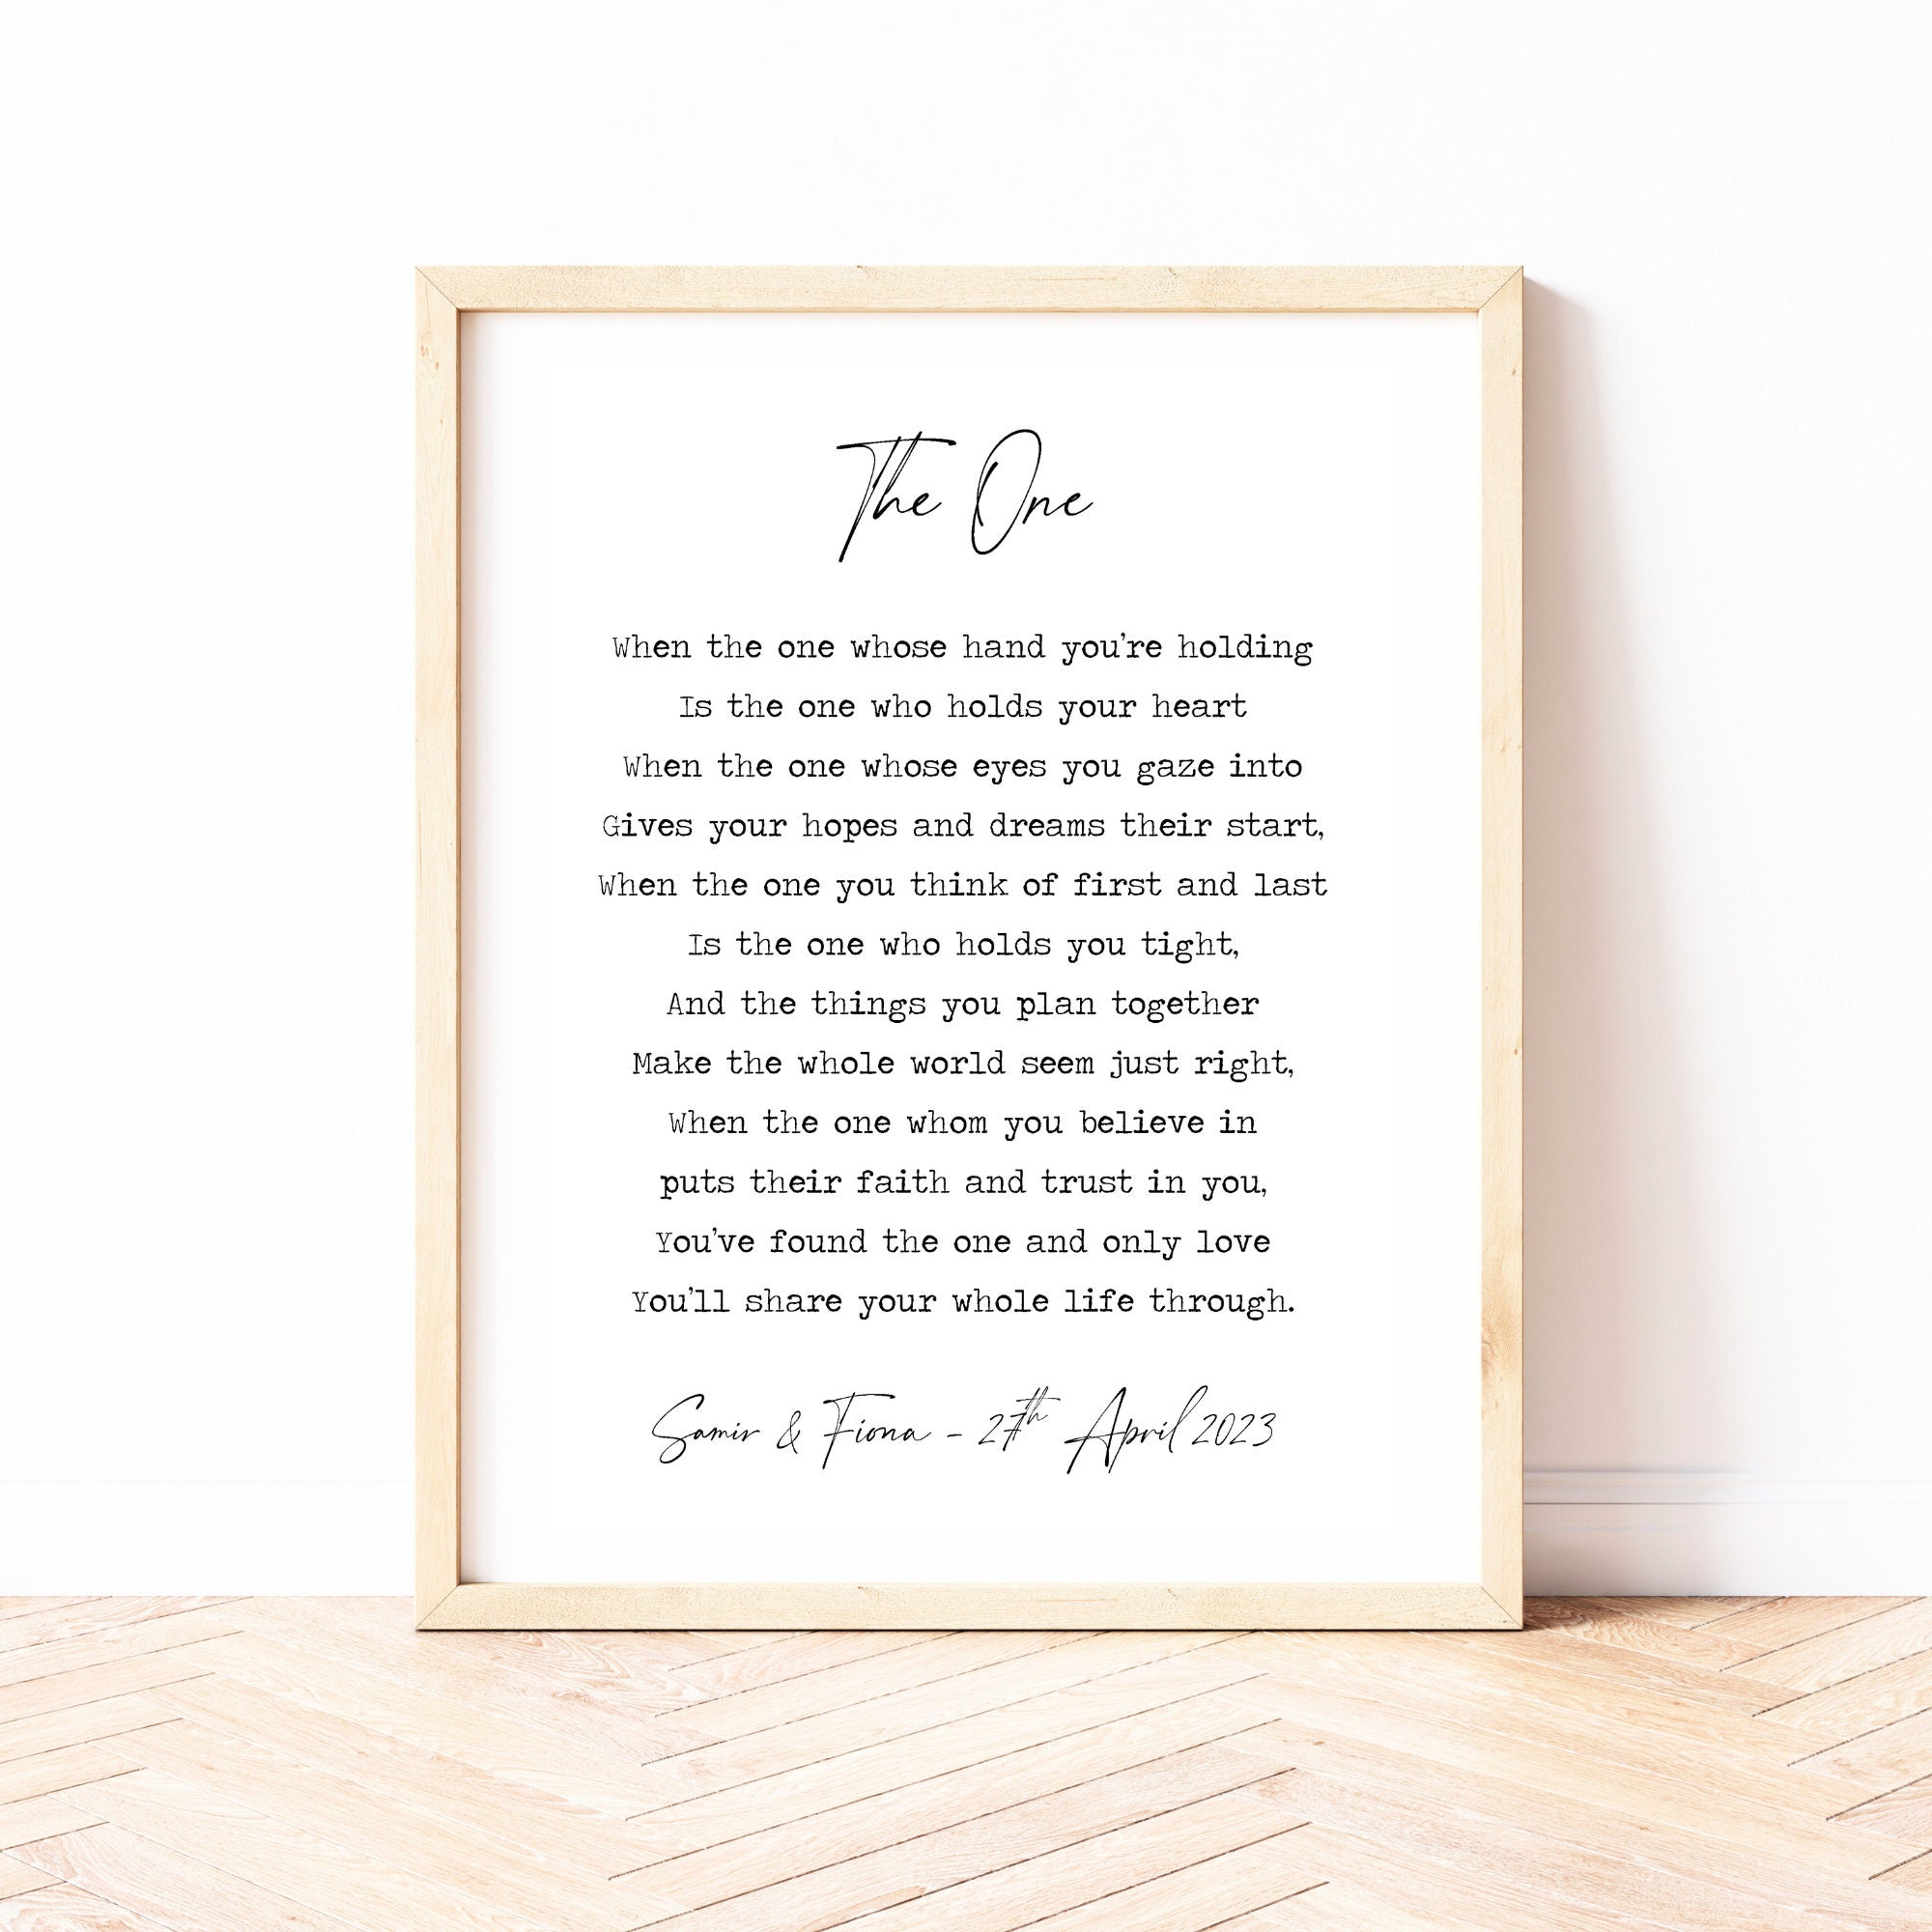 The One
When the one whose hand you're holding
Is the one who holds your heart
When the one whose eyes you gaze into
Gives your hopes and dreams their start,
When the one you think of first and last
Is the one who holds you tight,
And the things you plan together
Make the whole world seem just right,
When the one whom you believe in
puts their faith and trust in you,
You've found the one and only love
You'll share your whole life through.
Samir & Fiona - 27th April 2023